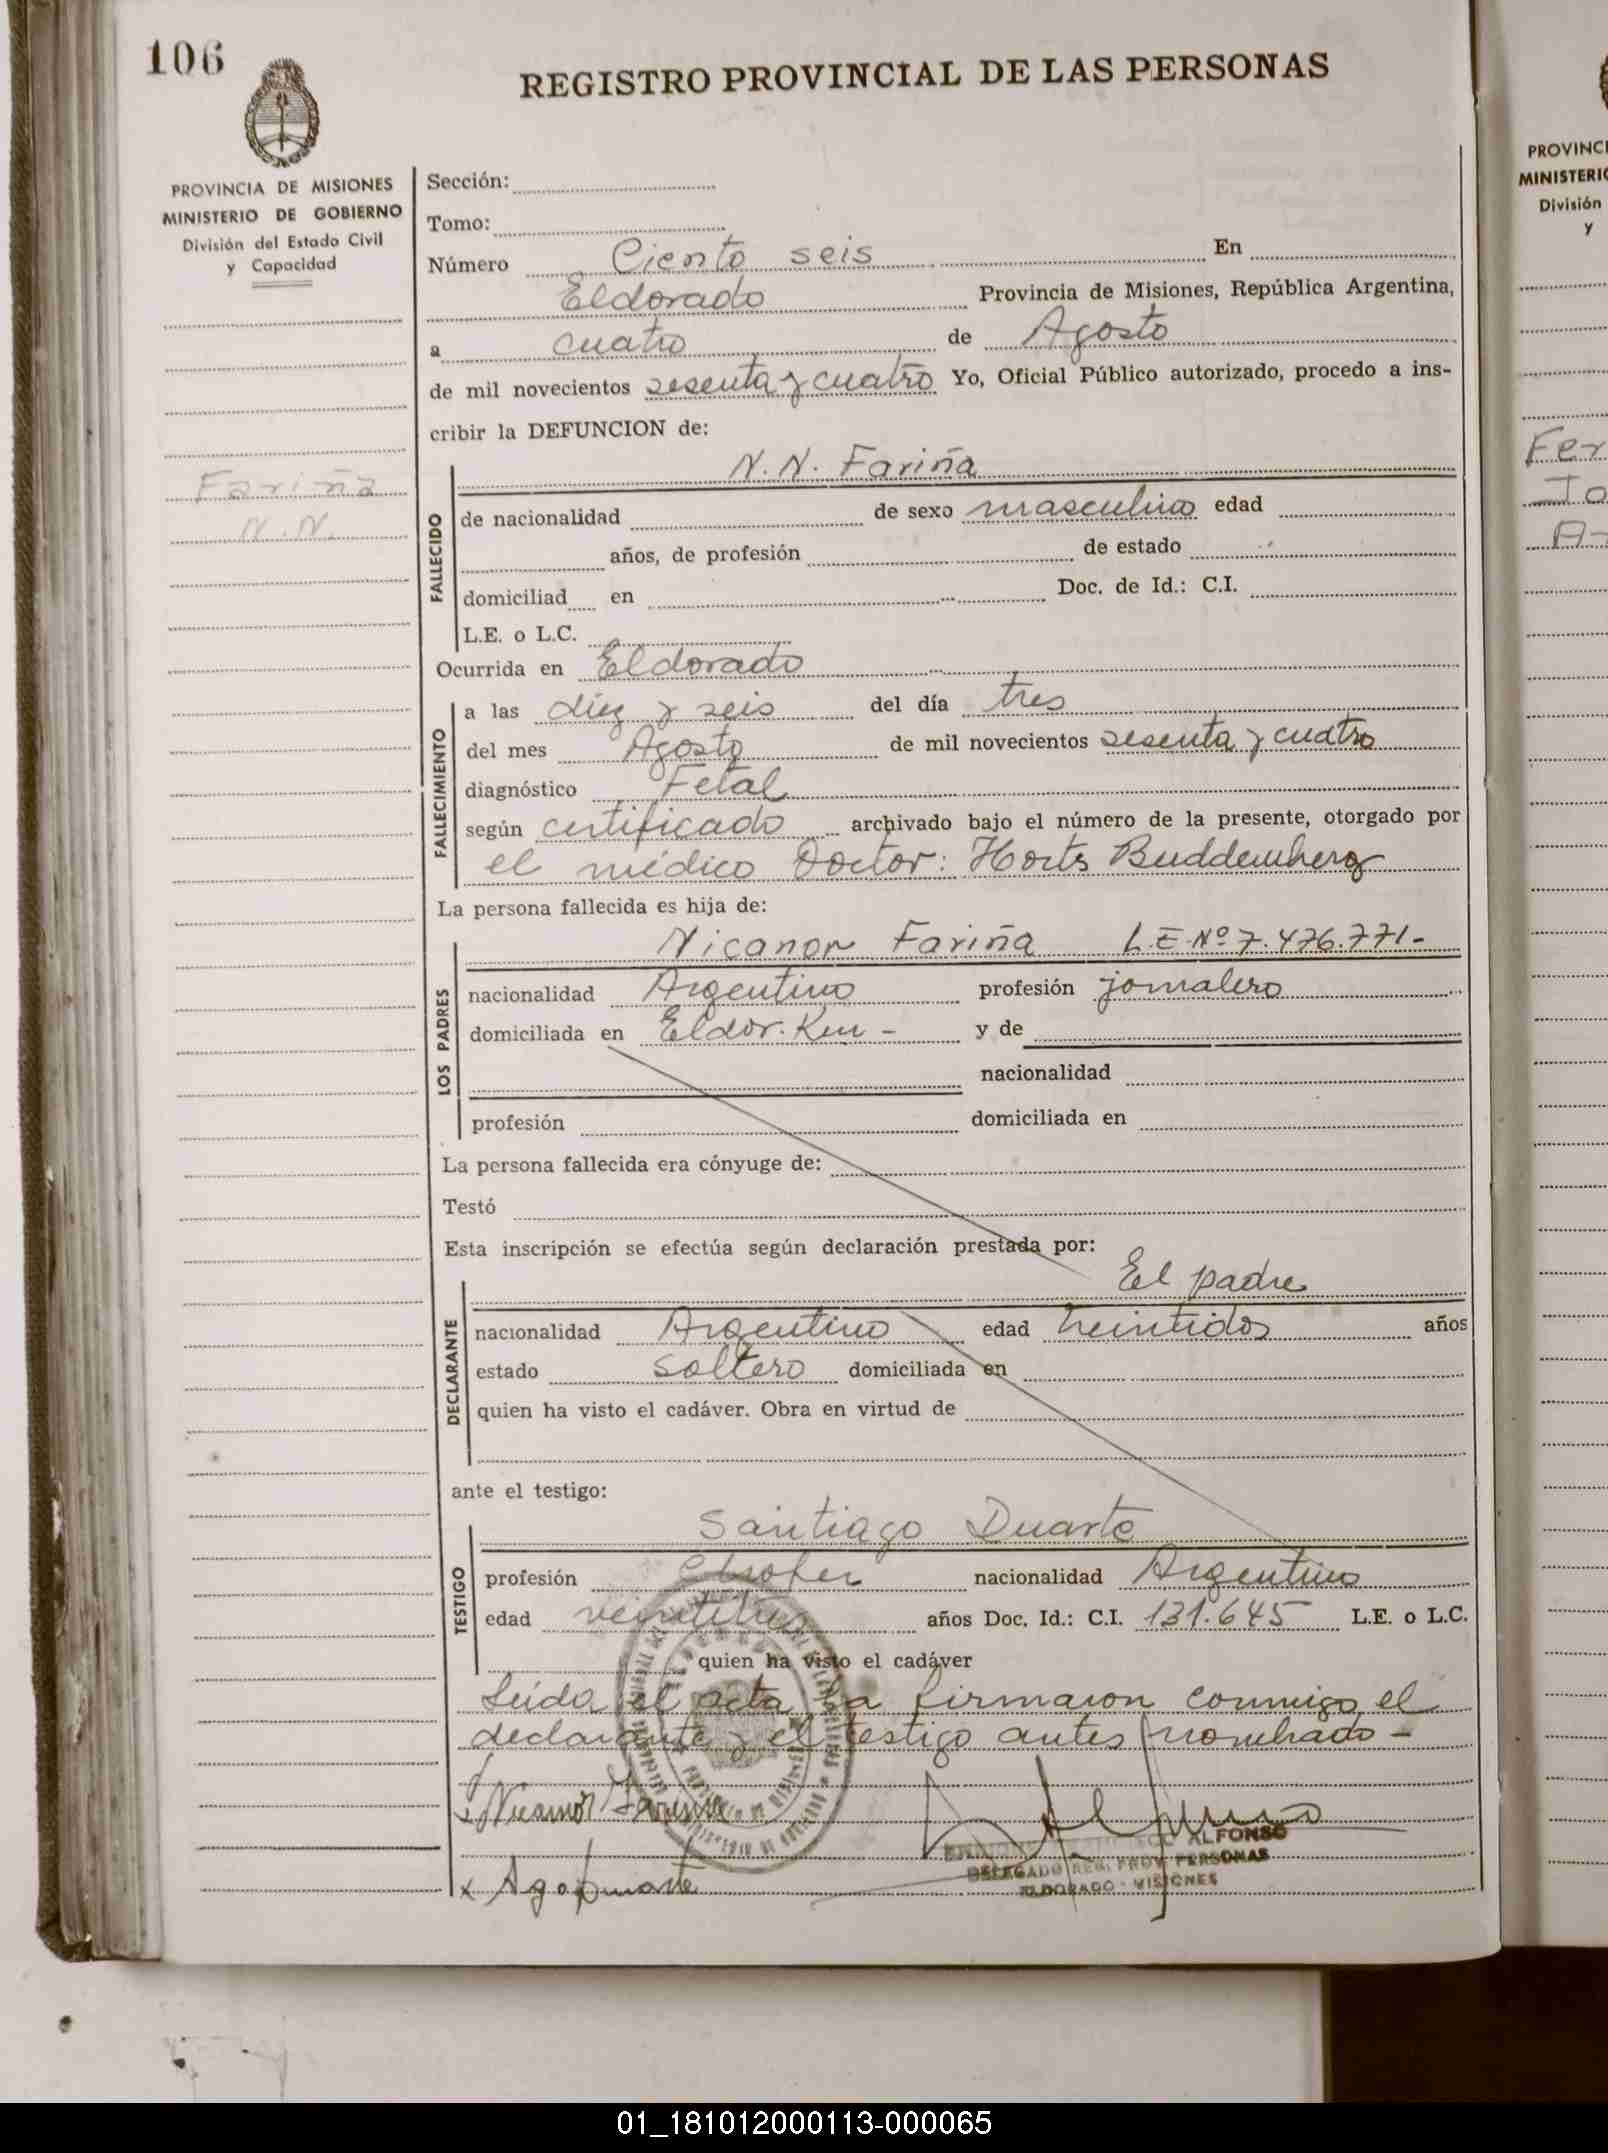 106
REGISTRO PROVINCIAL DE LAS PERSONAS
PROVINCIA DE MISIONES
MINISTERIO DE GOBIERNO
División del Estado Civil
y Capacidad
Fariña
N.N.
Sección:
Tomo:
Número Ciento seis En
Eldorado Provincia de Misiones, República Argentina,
a cuatro de Agosto
de mil novecientos sesenta y cuatro Yo, Oficial Público autorizado, procedo a ins-
cribir la DEFUNCION de:
FALLECIDO
N.N. Fariña
de nacionalidad de sexo masculino edad
años, de profesión de estado
domiciliad en Doc. de Id.: C.I.
L.E. o L.C.
Ocurrida en Eldorado
FALLECIMIENTO
a las diez y seis del día tres
del mes Agosto de mil novecientos sesenta y cuatro
diagnóstico Fetal
según certificado archivado bajo el número de la presente, otorgado por
el médico Doctor: Horts Buddemberg
La persona fallecida es hija de:
LOS PADRES
Nicanor Fariña L.E.Nº 7.476.771-
nacionalidad Argentino profesión jornalero
domiciliada en Eldor. Km - y de
nacionalidad
profesión domiciliada en
La persona fallecida era cónyuge de:
Testó
Esta inscripción se efectúa según declaración prestada por:
DECLARANTE
El padre
nacionalidad Argentino edad treintidos años
estado soltero domiciliada en
quien ha visto el cadáver. Obra en virtud de
ante el testigo:
TESTIGO
Santiago Duarte
profesión Chofer nacionalidad Argentino
edad veintitres años Doc. Id.: C.I. 131.645 L.E. o L.C.
quien ha visto el cadáver
Leida el acta la firmaron conmigo el
declarante y el testigo antes nombrado -
x Nicanor Farinna
ALFONSO
DELEGADO REG. PROV. PERSONAS
ELDORADO - MISIONES
x Duarte
PROVINCI
MINISTERIO
División
y
Fer
Jo
A
01_181012000113-000065